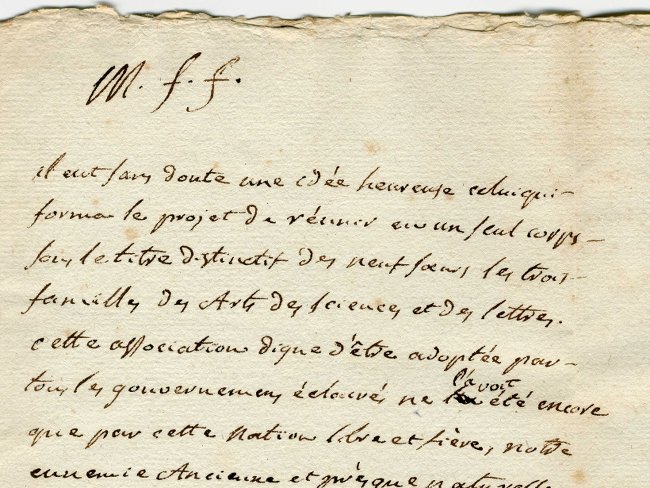 M. f. f.
il eut sans doute une idée heureuse celui qui
forma le projet de réunir en un seul corps
sous le titre distinctif des neuf sœurs les trois
familles des Arts des sciences et des lettres.
cette association digne d'être adoptée par
tous les gouvernemens éclairés ne l'avoit été encore
que par cette nation libre et fière, notre
ennemie Ancienne et présque naturelle